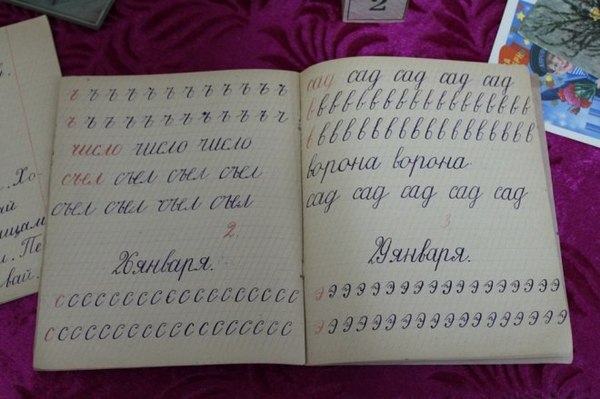 Хо-
ицам
Пе
вай.
2
ъ ъ ъ ъ ъ ъ ъ ъ ъ ъ ъ ъ
ъ ъ ъ ъ ъ ъ ъ ъ ъ ъ ъ ъ
число число число
съел съел съел съел
съел съел съел съел
2
28 января.
с с с с с с с с с с с с с с с с с
с с с с с с с с с с с с с с с с с
сад сад сад сад сад
в в в в в в в в в в в в в в в в в
в в в в в в в в в в в в в в в в в
ворона ворона
сад сад сад сад сад
3
29 января.
э э э э э э э э э э э э э э э э э
э э э э э э э э э э э э э э э э э